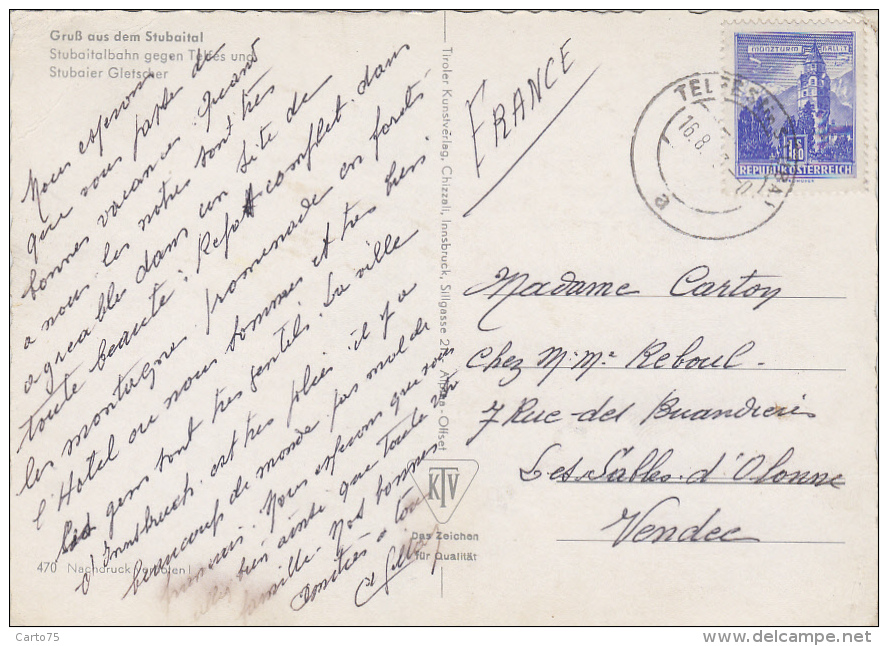 Gruß aus dem Stubaital
Stubaitalbahn gegen Telfes und
Stubaier Gletscher
Nous esperons
que vous passez de
bonnes vacances. Quand
a nous les notres sont tres
agreables dans un site de
toute beauté. Repos complet. dans
les montagnes promenade en forets
l'Hotel ou nous sommes et tres bien
Les gens sont tres gentils. La ville
d'Innsbruck est tres jolie il y a
beaucoup de monde pas mal de
francais. Nous esperons que vous
bien ainsi que toute votre
famille. Nos bonnes
Amitiés a tous
Tiroler Kunstverlag, Chizzali, Innsbruck, Sillgasse 21 Alpina-Offset
KTV
Das Zeichen
für Qualität
470 Nachdruck verboten!
FRANCE
MÜNZTURM HALL I.T.
S 1.80
REPUBLIK ÖSTERREICH
TELFES STUBAI
16.8.
a
Madame Carton
Chez M. Me Reboul.
7 Rue des Buanderies
Les Sables. d'Olonne
Vendee
Carto75
www.delcampe.net